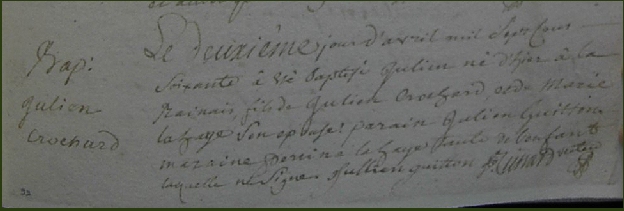 Bap:
Julien
Crochard
Le Deuxième jour d'avril mil Sept Cens
Soixante à été Baptisé Julien né d'hier à la
fils de Julien Crochard et de Marie
la haye Son epouse: parain Julien Guitton
marrine Perrine la haye tante de l'enfant
laquelle ne Signe Jullien guitton